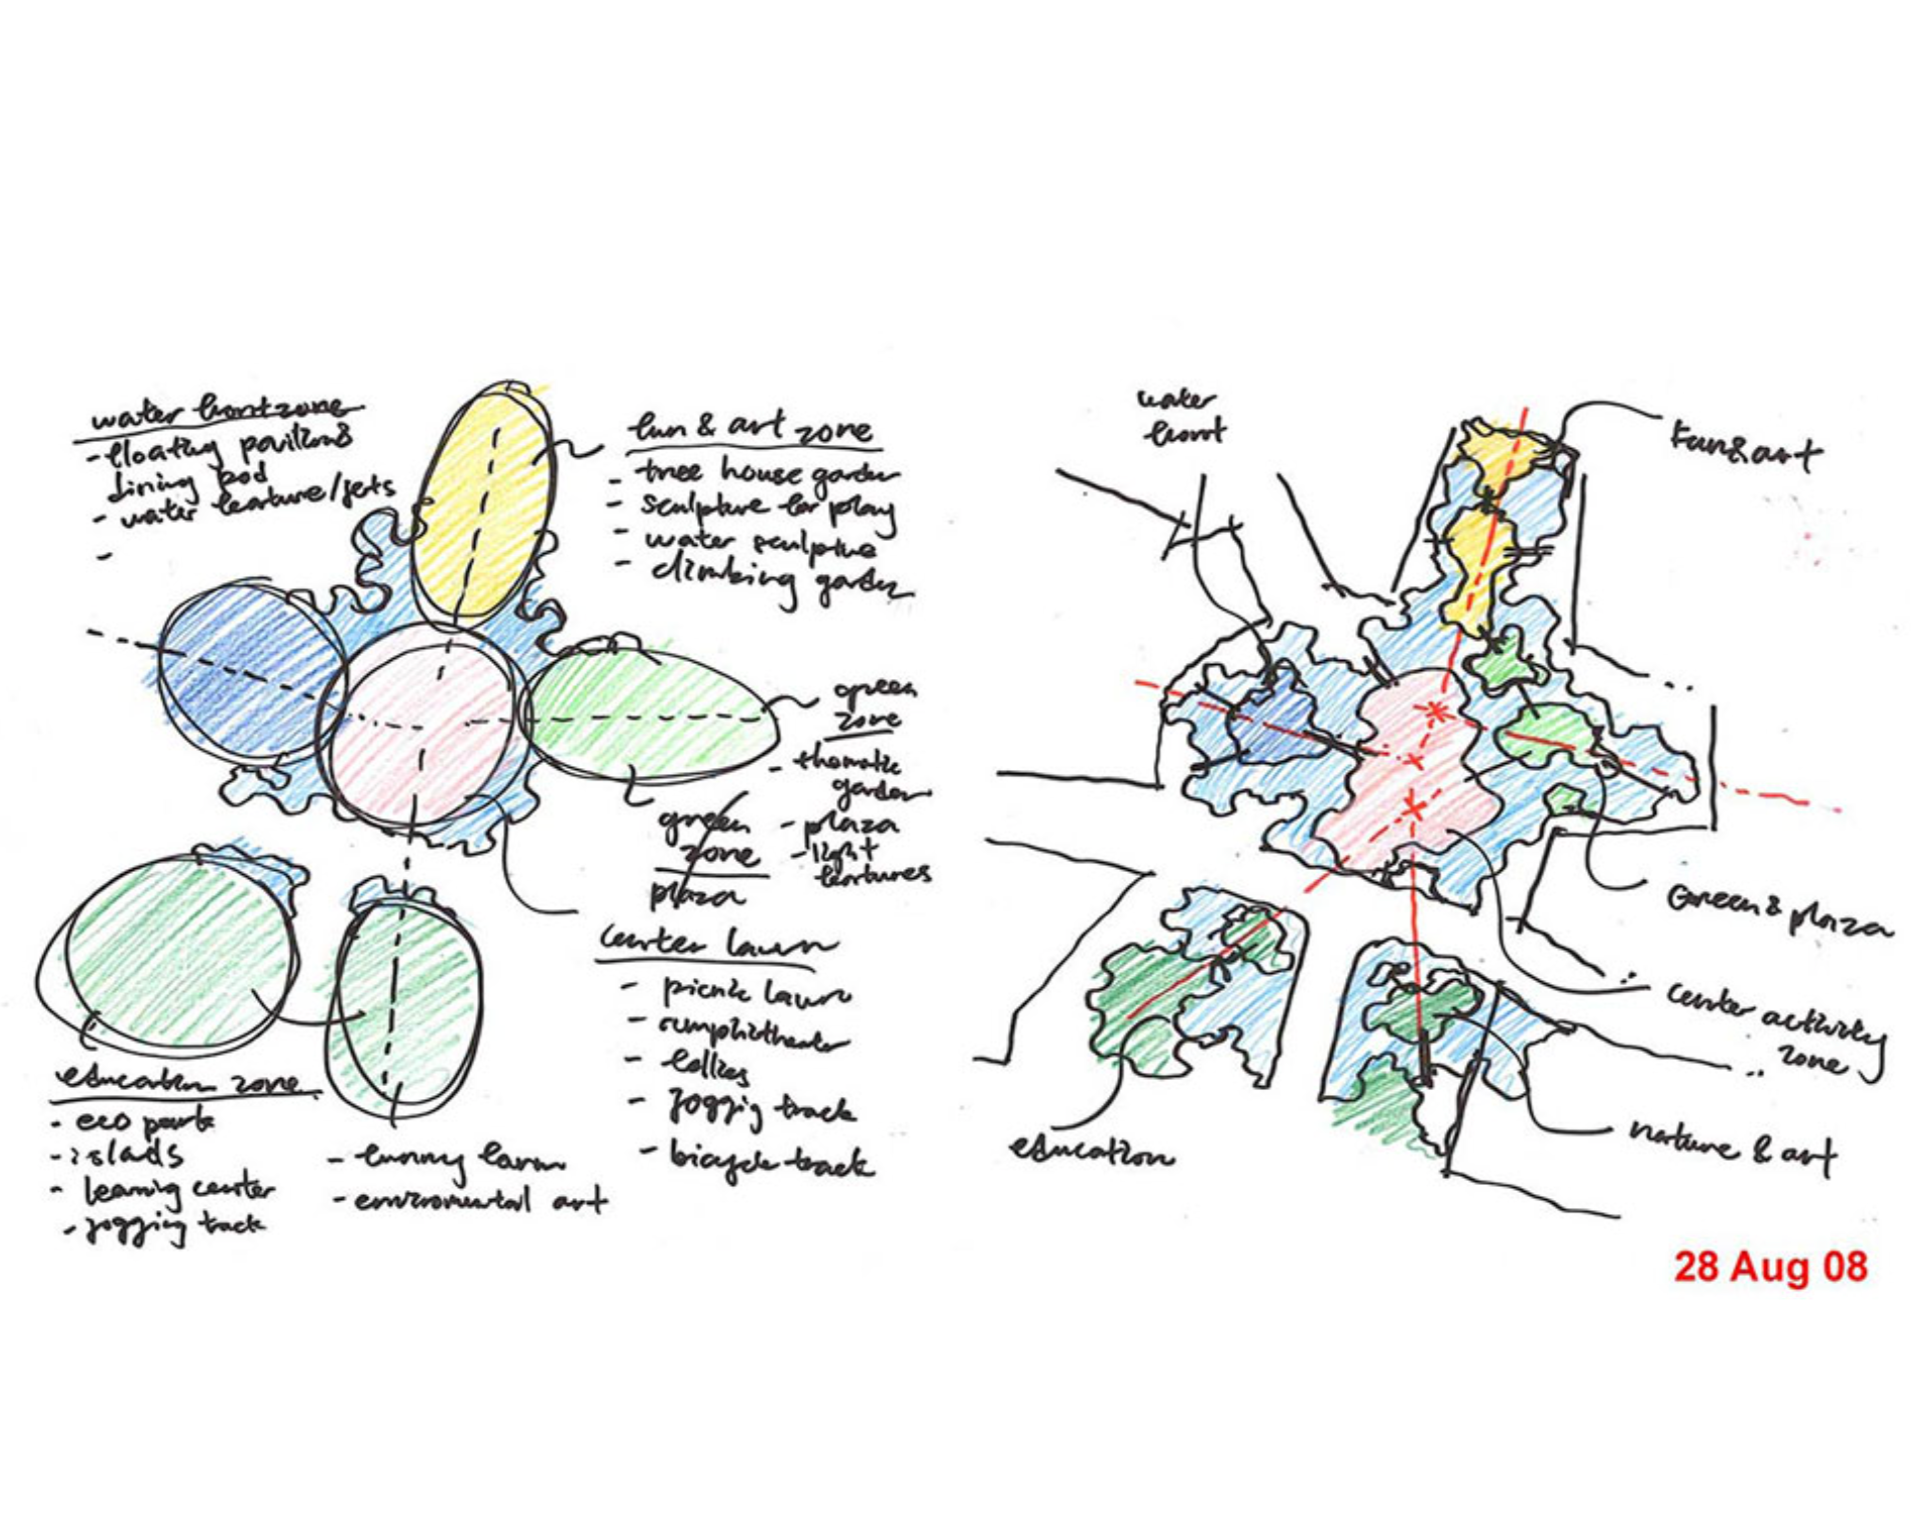 water front zone
- floating pavilions
dining pod
- water feature/jets
-
fun & art zone
- tree house garden
- sculpture for play
- water sculpture
- climbing garden
green
zone
- thematic
garden
- plaza
- light
features
green
zone
plaza
center lawn
- picnic lawn
- amphitheater
- follies
- joggig track
- bicycle track
education zone
- eco park
- islads
- learnig center
- jogging track
- farm
- enviromental art
water
front
Fun & art
Green & plaza
center activity
zone
nature & art
education
28 Aug 08